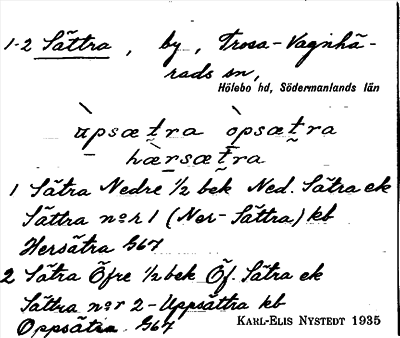 1-2 Sättra, by, Trosa-Vagnhä-
rads sn,
Hölebo hd, Södermanlands län
ùpsætra òpsætra
hærsætra
1 Sätra Nedre 1/2 bek Ned. Sätra ek
Sättra nor 1 (Ner-Sättra) kb
Hersätra G67
2 Sätra Öfre 1/2 bek Öf. Sätra ek
Sättra nor 2 - Uppsättra kb
Oppsätra G67
KARL-ELIS NYSTEDT 1935